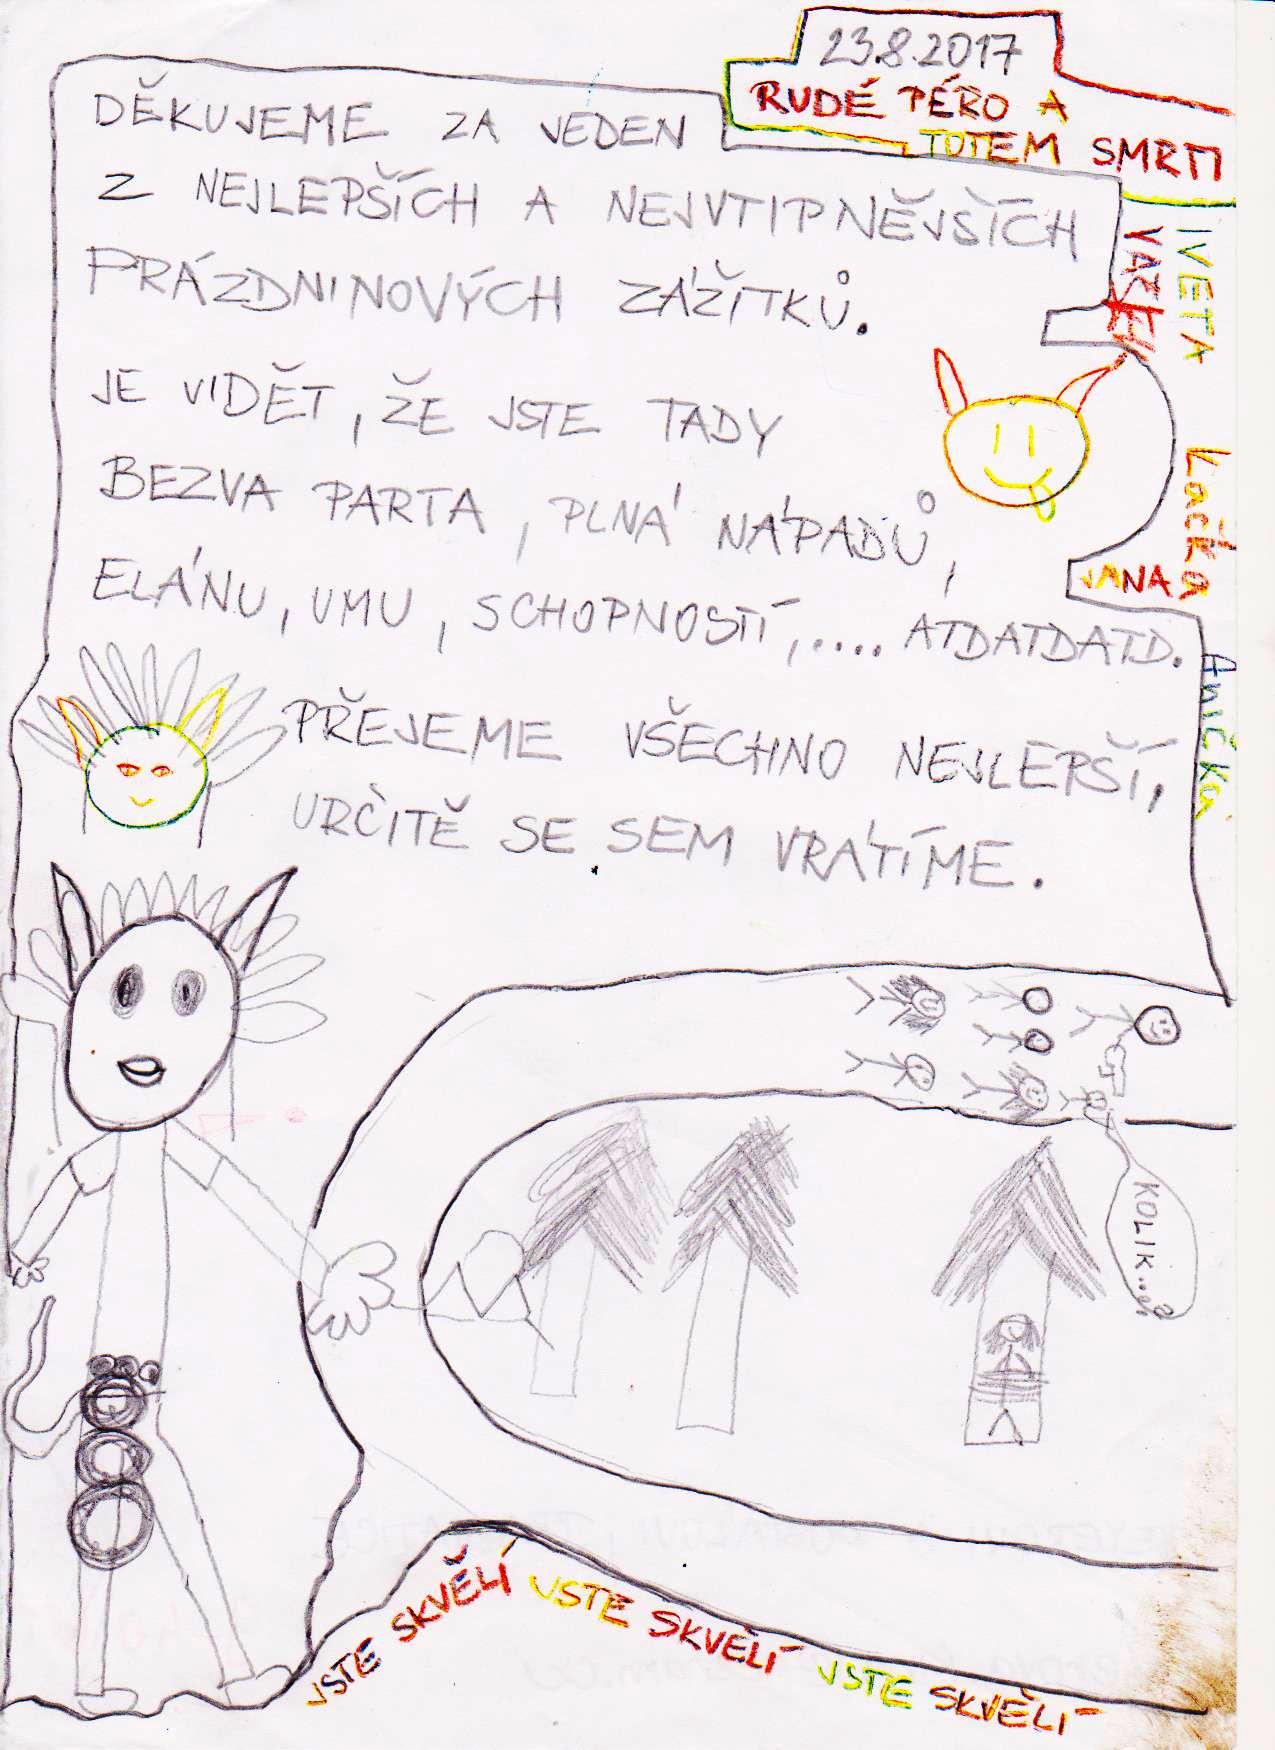 23.8.2017
RUDÉ PÉRO A
TOTEM SMRTI
DĚKUJEME ZA JEDEN
Z NEJLEPŠÍCH A NEJVTIPNĚJŠÍCH
PRÁZDNINOVÝCH ZÁŽITKŮ.
JE VIDĚT, ŽE JSTE TADY
BEZVA PARTA, PLNÁ NÁPADŮ,
ELÁNU, UMU, SCHOPNOSTÍ,.... ATDATDATD.
PŘEJEME VŠECHNO NEJLEPŠÍ,
URČITĚ SE SEM VRÁTÍME.
IVETA
VAŠEK
Kačka
JANA
Anička
KOLIK...?
JSTE SKVĚLÍ JSTE SKVĚLÍ JSTE SKVĚLÍ